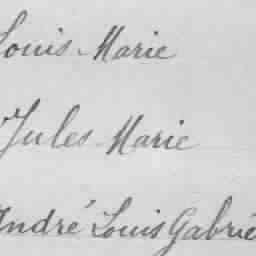 Louis Marie
Jules Marie
André Louis Gabrie